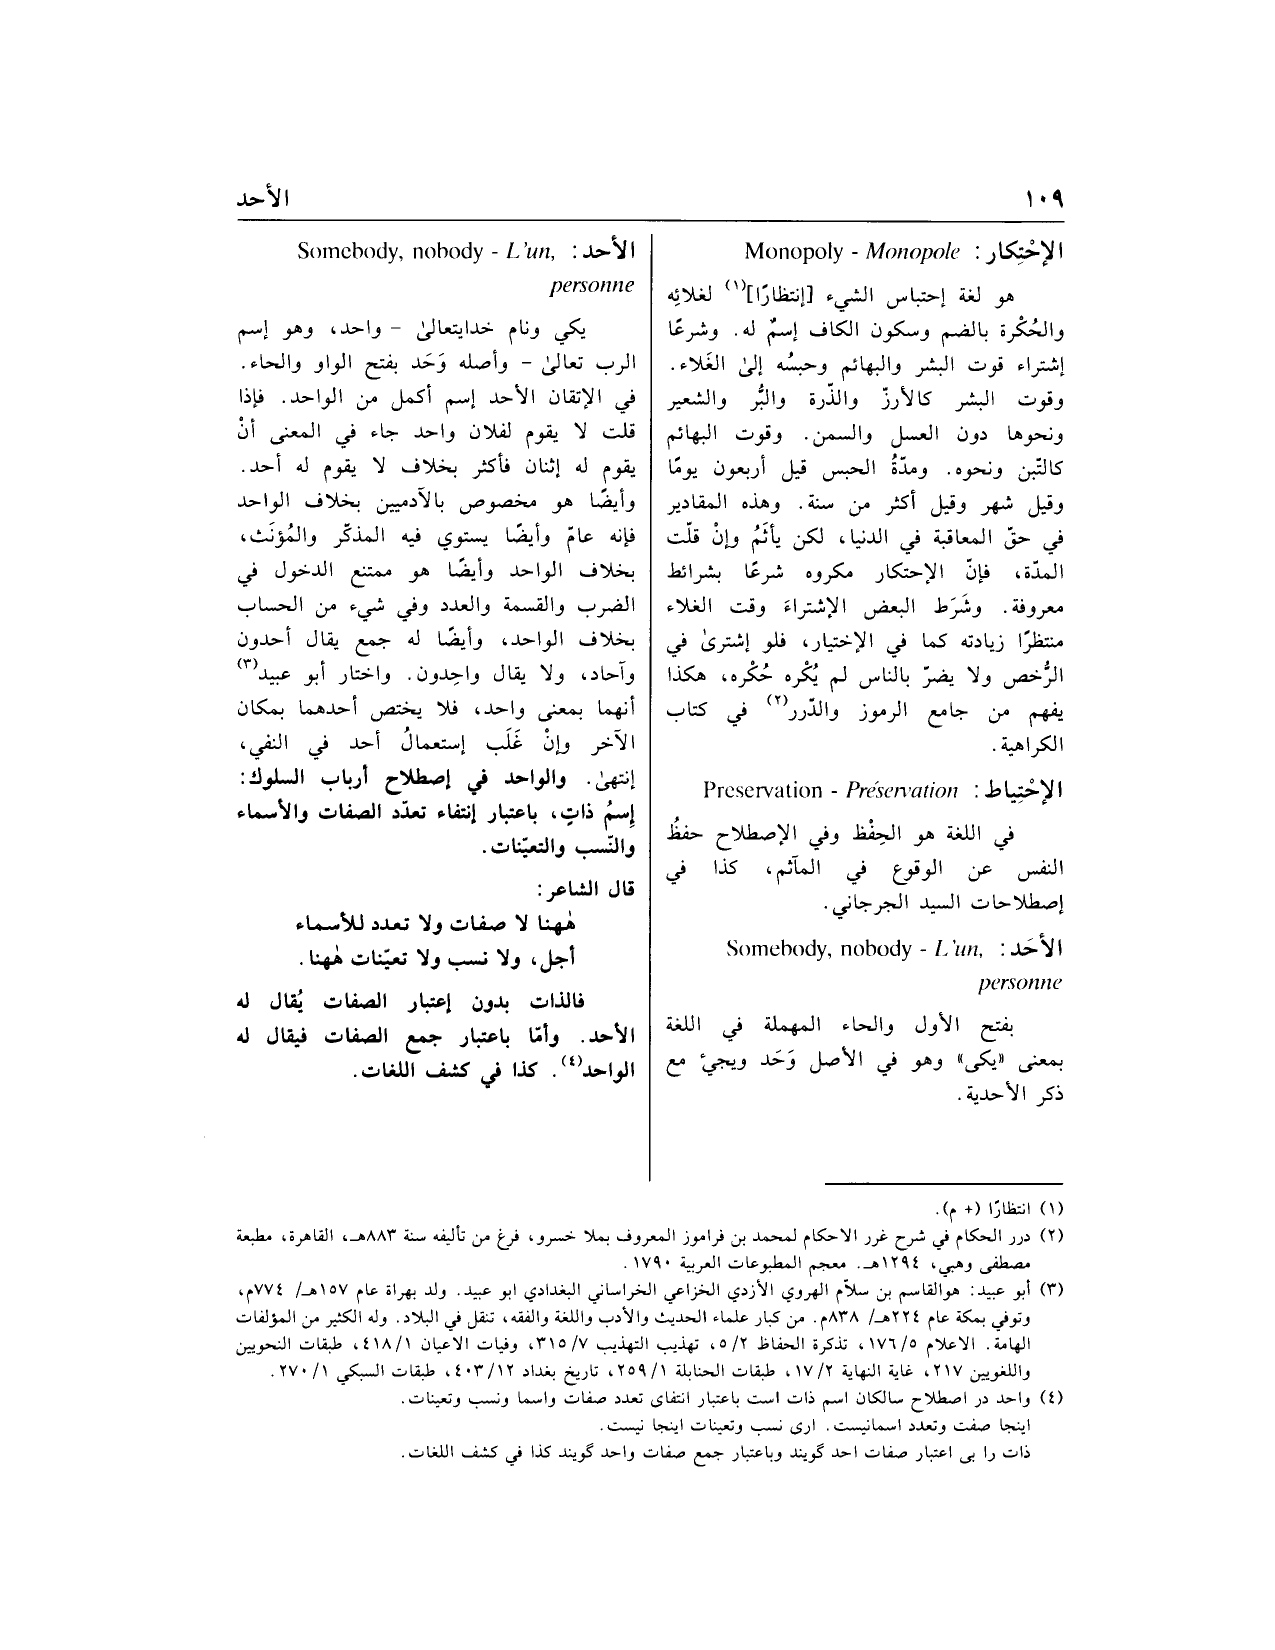 ١٠٩
الأحد
الإحْتِكار : Monopoly - Monopole
هو لغة إحتباس الشيء [إنتظارًا](١) لغلائه
والحُكْرة بالضم وسكون الكاف إسمٌ له. وشرعًا
إشتراء قوت البشر والبهائم وحبسُه إلىٰ الغَلاء.
وقوت البشر كالأرزّ والذّرة والبُّر والشعير
ونحوها دون العسل والسمن. وقوت البهائم
كالتّبن ونحوه. ومدّةُ الحبس قيل أربعون يومًا
وقيل شهر وقيل أكثر من سنة. وهذه المقادير
في حقّ المعاقبة في الدنيا، لكن يأثَمُ وإنْ قلّت
المدّة، فإنّ الإحتكار مكروه شرعًا بشرائط
معروفة. وشَرَط البعض الإشتراءَ وقت الغلاء
منتظرًا زيادته كما في الإختيار، فلو إشترىٰ في
الرُّخص ولا يضرّ بالناس لم يُكْره حُكْره، هكذا
يفهم من جامع الرموز والدّرر(٢) في كتاب
الكراهية.
الإحْتِياط : Preservation - Préservation
في اللغة هو الحِفْظ وفي الإصطلاح حفظُ
النفس عن الوقوع في المآثم، كذا في
إصطلاحات السيد الجرجاني.
الأحَد : Somebody, nobody - L'un,
personne
بفتح الأول والحاء المهملة في اللغة
بمعنى «يكى» وهو في الأصل وَحَد ويجئ مع
ذكر الأحدية.
الأحد : Somebody, nobody - L'un,
personne
يكي ونام خدايتعالىٰ - واحد، وهو إسم
الرب تعالىٰ - وأصله وَحَد بفتح الواو والحاء.
في الإتقان الأحد إسم أكمل من الواحد. فإذا
قلت لا يقوم لفلان واحد جاء في المعنى أنْ
يقوم له إثنان فأكثر بخلاف لا يقوم له أحد.
وأيضًا هو مخصوص بالآدميين بخلاف الواحد
فإنه عامّ وأيضًا يستوي فيه المذكّر والمُؤنَث،
بخلاف الواحد وأيضًا هو ممتنع الدخول في
الضرب والقسمة والعدد وفي شيء من الحساب
بخلاف الواحد، وأيضًا له جمع يقال أحدون
وآحاد، ولا يقال واحِدون. واختار أبو عبيد(٣)
أنهما بمعنى واحد، فلا يختص أحدهما بمكان
الآخر وإنْ غَلَب إستعمالُ أحد في النفي،
إنتهىٰ. والواحد في إصطلاح أرباب السلوك:
إِسمُ ذاتٍ، باعتبار إنتفاء تعدّد الصفات والأسماء
والنّسب والتعيّنات.
قال الشاعر:
هٰهنا لا صفات ولا تعدد للأسماء
أجل، ولا نسب ولا تعيّنات هٰهنا.
فالذات بدون إعتبار الصفات يُقال له
الأحد. وأمّا باعتبار جمع الصفات فيقال له
الواحد(٤). كذا في كشف اللغات.
(١) انتظارًا (+ م).
(٢) درر الحكام في شرح غرر الاحكام لمحمد بن فراموز المعروف بملا خسرو، فرغ من تأليفه سنة ٨٨٣هـ، القاهرة، مطبعة
مصطفى وهبي، ١٢٩٤هـ. معجم المطبوعات العربية ١٧٩٠.
(٣) أبو عبيد: هوالقاسم بن سلاّم الهروي الأزدي الخزاعي الخراساني البغدادي ابو عبيد. ولد بهراة عام ١٥٧هـ/ ٧٧٤م،
وتوفي بمكة عام ٢٢٤هـ/ ٨٣٨م. من كبار علماء الحديث والأدب واللغة والفقه، تنقل في البلاد. وله الكثير من المؤلفات
الهامة. الاعلام ١٧٦/٥، تذكرة الحفاظ ٥/٢، تهذيب التهذيب ٣١٥/٧، وفيات الاعيان ٤١٨/١، طبقات النحويين
واللغويين ٢١٧، غاية النهاية ١٧/٢، طبقات الحنابلة ٢٥٩/١، تاريخ بغداد ٤٠٣/١٢، طبقات السبكي ٢٧٠/١.
(٤) واحد در اصطلاح سالكان اسم ذات است باعتبار انتفاى تعدد صفات واسما ونسب وتعينات.
اينجا صفت وتعدد اسمانيست. ارى نسب وتعينات اينجا نيست.
ذات را بى اعتبار صفات احد گويند وباعتبار جمع صفات واحد گويند كذا في كشف اللغات.